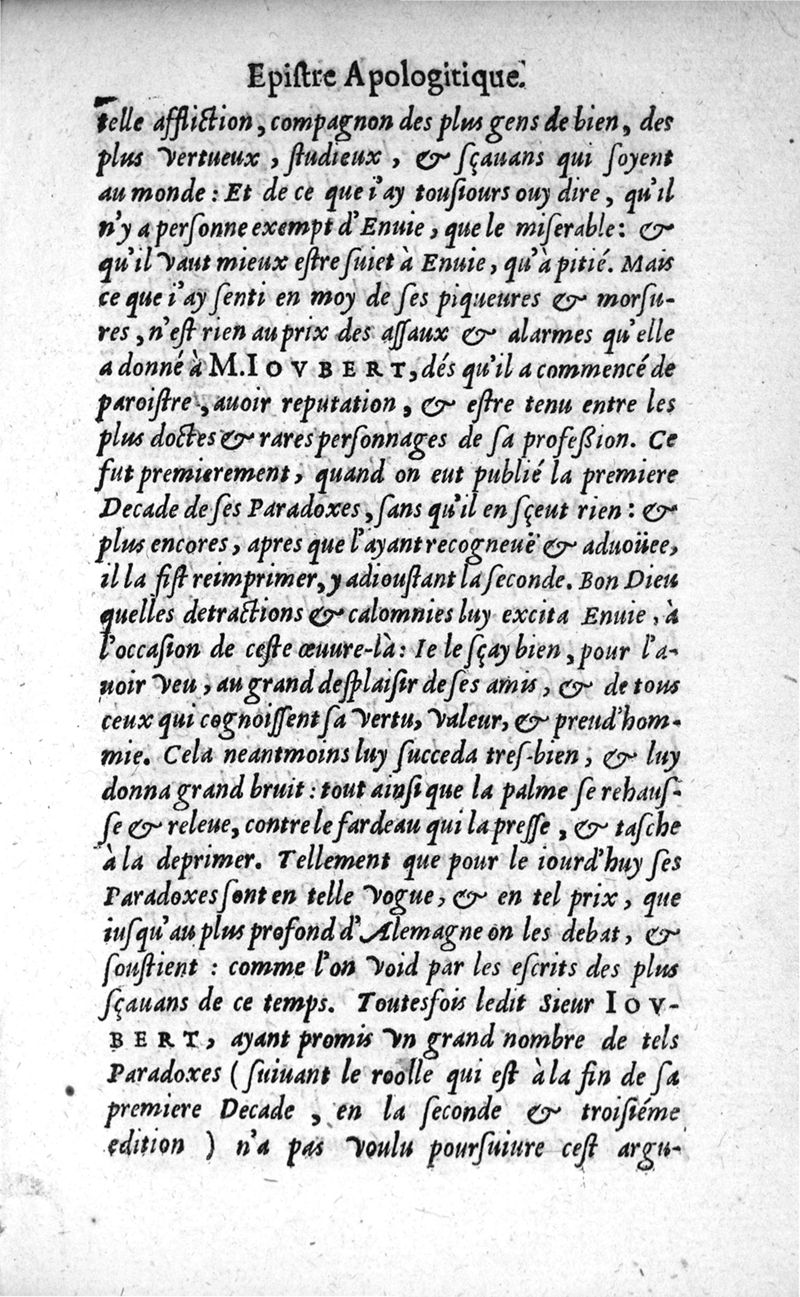 Epiſtre Apologitique.
telle affliction, compagnon des plus gens de bien, des
plus vertueux, ſtudieux, & ſçauans qui ſoyent
au monde : Et de ce que i'ay touſiours ouy dire, qu'il
n'y a perſonne exempt d'Enuie, que le miſerable: &
qu'il vaut mieux eſtre ſuiet à Enuie, qu'à pitié. Mais
ce que i'ay ſenti en moy de ſes piqueures & morſu-
res, n'eſt rien au prix des aſſaux & alarmes qu'elle
a donné à M. IOVBERT, dés qu'il a commencé de
paroiſtre, auoir reputation, & eſtre tenu entre les
plus doctes & rares perſonnages de ſa profeßion. Ce
fut premierement, quand on eut publié la premiere
Decade de ſes Paradoxes, ſans qu'il en ſçeut rien : &
plus encores, apres que l'ayant recogneuë & aduoüee,
il la fiſt reimprimer, y adiouſtant la ſeconde. Bon Dieu
quelles detractions & calomnies luy excita Enuie, à
l'occaſion de ceſte œuure-là : Ie le ſçay bien, pour l'a-
uoir veu, au grand deſplaiſir de ſes amis, & de tous
ceux qui cognoiſſent ſa vertu, valeur, & preud'hom-
mie. Cela neantmoins luy ſucceda treſ-bien, & luy
donna grand bruit : tout ainſi que la palme ſe rehauſ-
ſe & releue, contre le fardeau qui la preſſe, & taſche
à la deprimer. Tellement que pour le iourd'huy ſes
Paradoxes ſont en telle vogue, & en tel prix, que
iuſqu'au plus profond d'Alemagne on les debat, &
ſouſtient : comme l'on void par les eſcrits des plus
ſçauans de ce temps. Toutesfois ledit Sieur IOV-
BERT, ayant promis vn grand nombre de tels
Paradoxes (ſuiuant le roolle qui eſt à la fin de ſa
premiere Decade, en la ſeconde & troiſiéme
edition) n'a pas voulu pourſuiure ceſt argu-